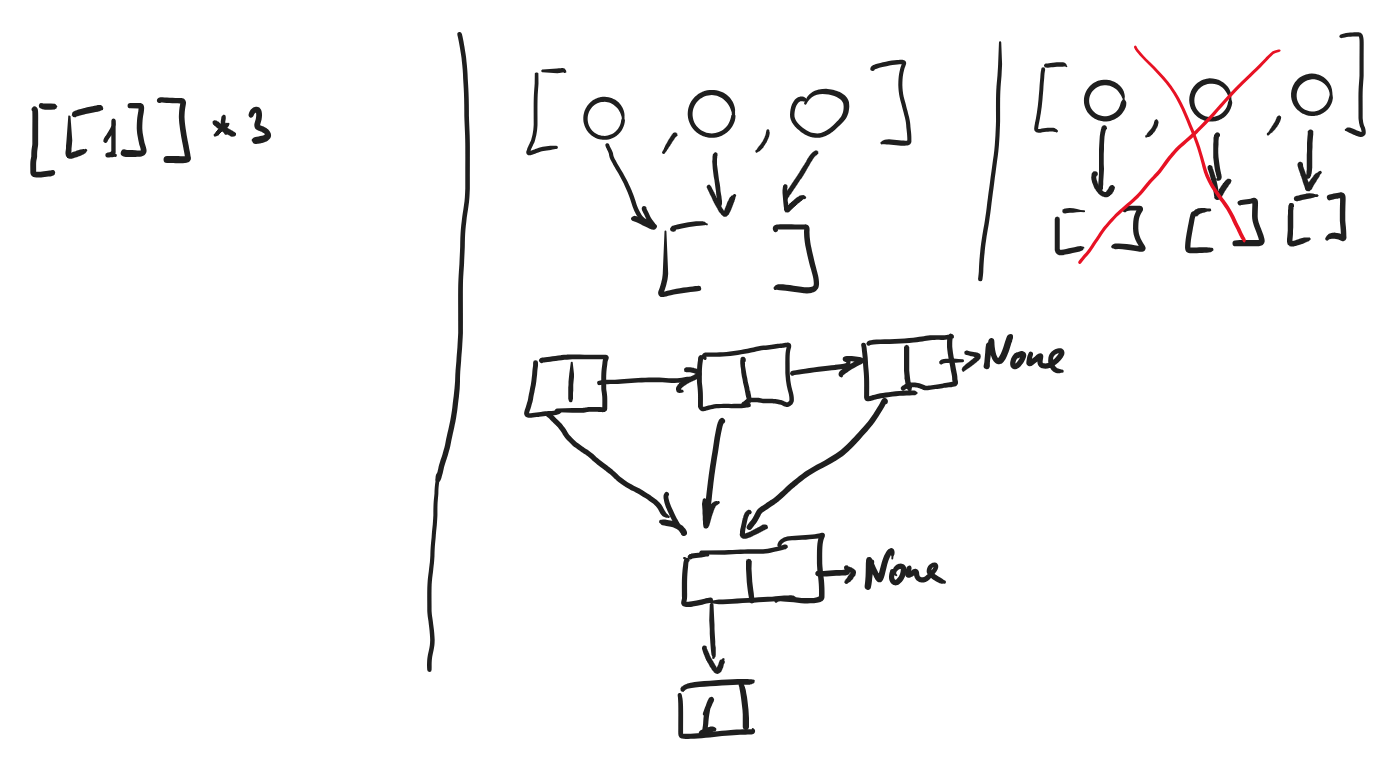 [[1]] * 3
[ , , ]
[ ]
[ , , ]
[ ] [ ] [ ]
None
None
1